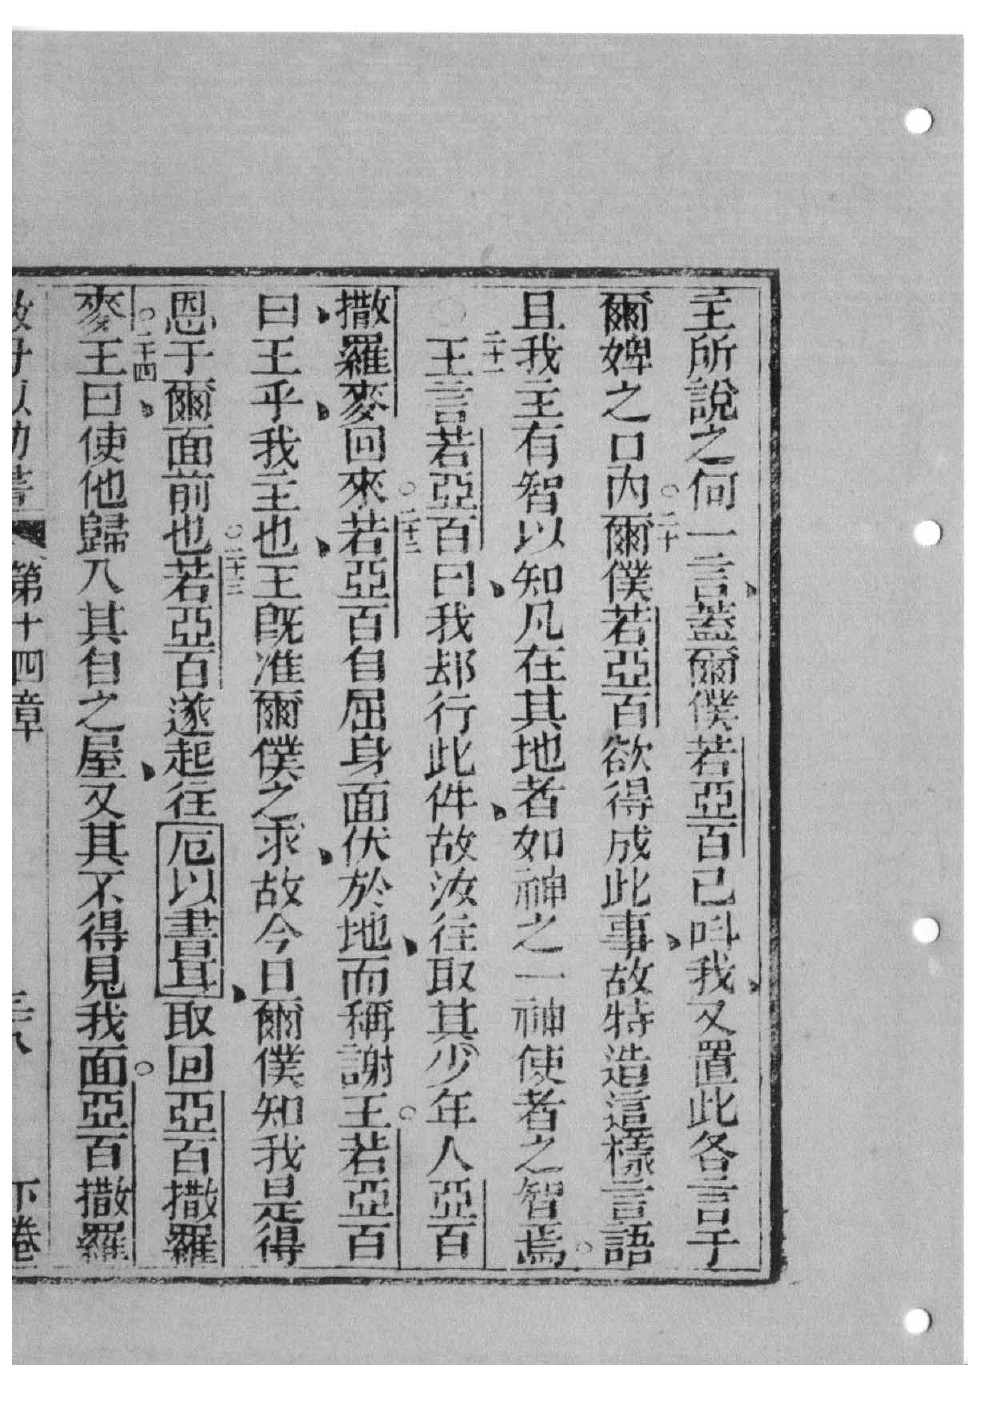 主所說之何一言蓋爾僕若亞百已呌我又置此各言于
爾婢之口內○二十爾僕若亞百欲得成此事故特造這樣言語
且我主有智以知凡在其地者如神之一神使者之智焉○
二十一王言若亞百曰我却行此件故汝往取其少年人亞百
撒羅麥回來○二十二若亞百自屈身面伏於地而稱謝王○若亞百
曰王乎我主也王既准爾僕之求故今日爾僕知我是得
恩于爾面前也○二十三若亞百遂起往厄以書耳取回亞百撒羅
麥○二十四王曰使他歸入其自之屋又其不得見我面○亞百撒羅
第十四章 下卷